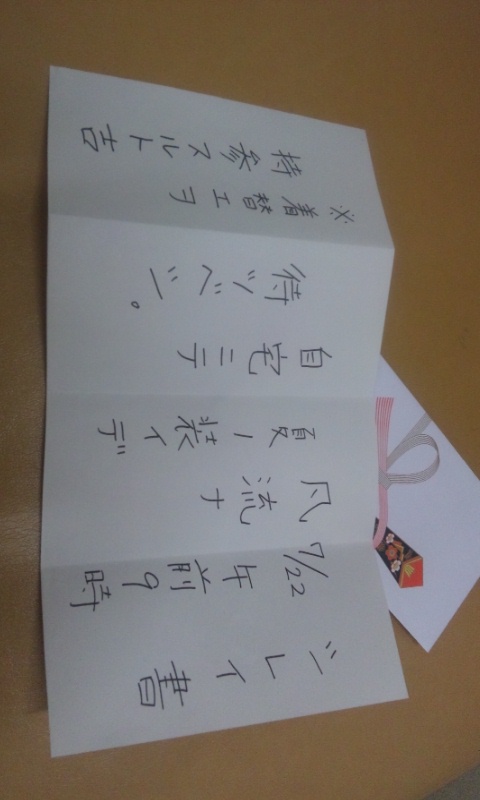 シレイ書
7/22 午前9時
風流ナ
夏ノ装イデ
自宅ニテ
待ツベシ。
※着替エヲ
持参スルト吉